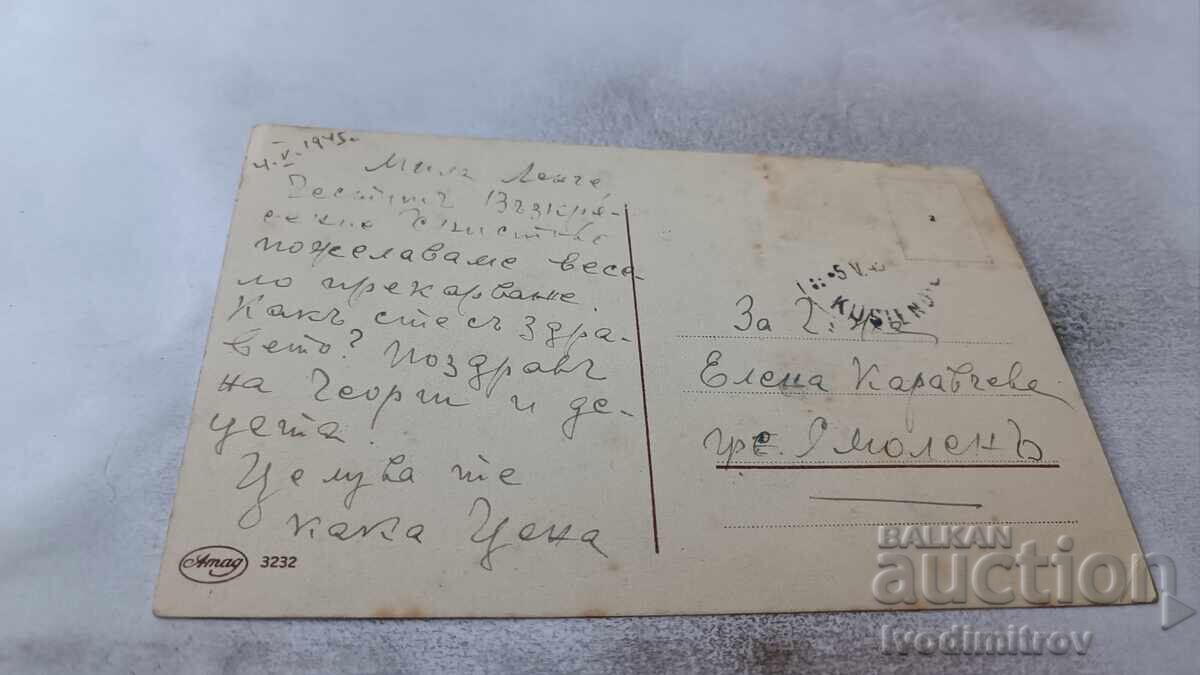 4.V.1945.
Мила Ленче,
Честитъ Възкре-
сение Христово
пожелаваме весе-
ло прекарване.
Какъ сте съ здра-
вето? Поздравъ
на Георги и де-
цата.
Целува те
кака Цена
Amag 3232
5 V
За
Елена Каравчева
гр. Смоленъ
BALKAN
auction
Ivodimitrov